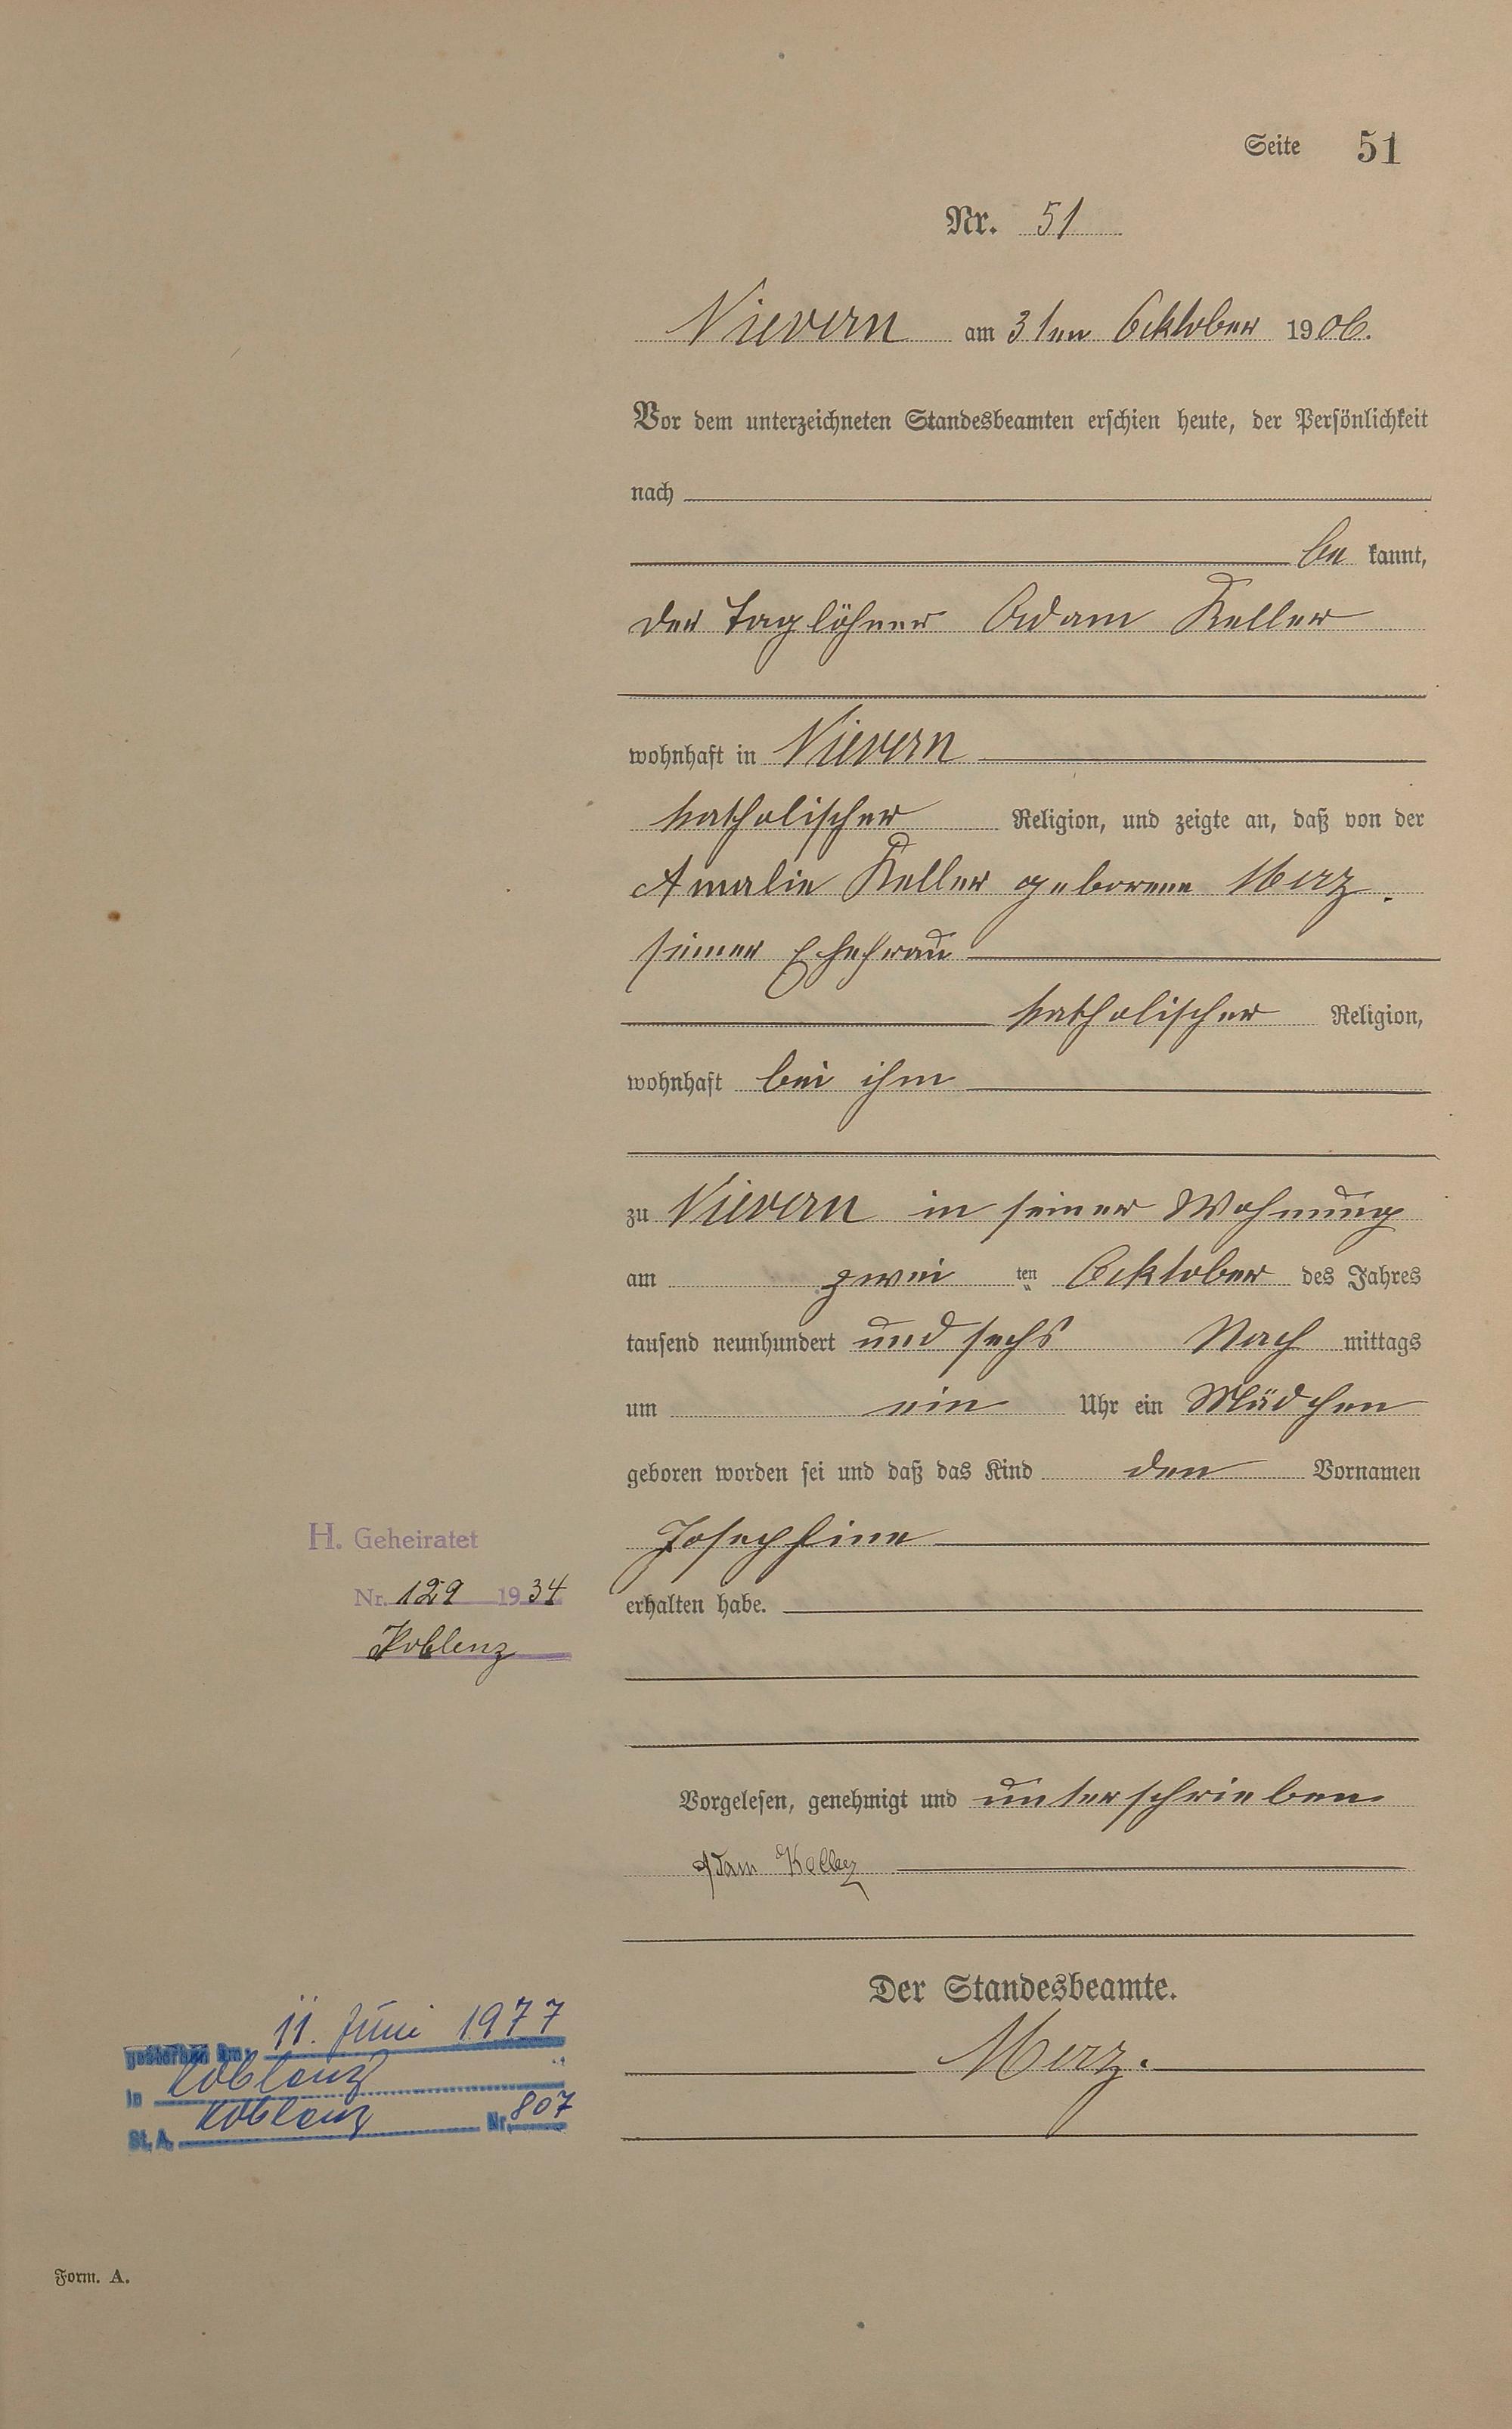 Seite 51
Nr. 51
Nievern am 3ten Ocktober 1906.
Vor dem unterzeichneten Standesbeamten erschien heute, der Persönlichkeit
nach
be kannt,
der Taglöhner Adam Keller
wohnhaft in Nievern
katholischer Religion, und zeigte an, daß von der
Amalie Keller geborene Merz.
seiner Ehefrau
katholischer Religion,
wohnhaft bei ihm
zu Nievern in seiner Wohnung
am zwei ten Ocktober des Jahres
tausend neunhundert und sechs Nach mittags
um ein Uhr ein Mädchen
geboren worden sei und daß das Kind den Vornamen
Josephine
erhalten habe.
H. Geheiratet
Nr. 129 1934
Koblenz
Vorgelesen, genehmigt und unterschrieben
Adam Keller
Der Standesbeamte.
Merz.
gestorben am: 11. Juni 1977
in Koblenz
St. A. Koblenz Nr. 807
Form. A.